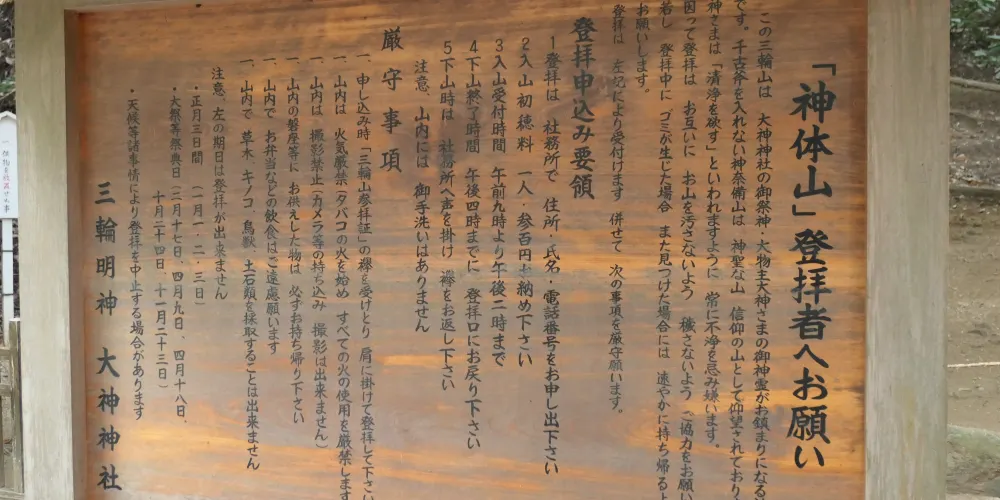 「神体山」登拝者へお願い
この三輪山は 大神神社の御祭神・大物主大神さまの御神霊がお鎮まりになる
です。千古斧を入れない神奈備山は 神聖な山 信仰の山として仰望されており
神さまは「清浄を欲す」といわれますように 常に不浄を忌み嫌います。
因って登拝は お互いに お山を汚さないよう 穢さないよう ご協力をお願い
若し 登拝中に ゴミが生じた場合 また見つけた場合には 速やかに持ち帰るよ
お願いします。
登拝は 左記により受付けます 併せて 次の事項を厳守願います。
登拝申込み要領
1登拝は 社務所で 住所・氏名・電話番号をお申し出下さい
2入山初穂料 一人・参百円お納め下さい
3入山受付時間 午前九時より午後二時まで
4下山終了時間 午後四時までに 登拝口にお戻り下さい
5下山時は 社務所へ声を掛け 襷をお返し下さい
注意 山内には 御手洗いはありません
厳守事項
一、申し込み時「三輪山参拝証」の襷を受けとり 肩に掛けて登拝して下さい
一、山内は 火気厳禁(タバコの火を始め すべての火の使用を厳禁します
一、山内は 撮影禁止(カメラ等の持ち込み 撮影は出来ません)
一、山内の磐座等に お供えした物は 必ずお持ち帰り下さい
一、山内で お弁当などの飲食はご遠慮願います
一、山内で 草木、キノコ、鳥獣、土石類を採取することは出来ません
注意、左の期日は登拝が出来ません
・正月三日間 (一月一・二・三日)
・大祭等祭典日(二月十七日、四月九日、四月十八日、
十月二十四日、十一月二十三日)
・天候等諸事情により登拝を中止する場合があります
三輪明神 大神神社